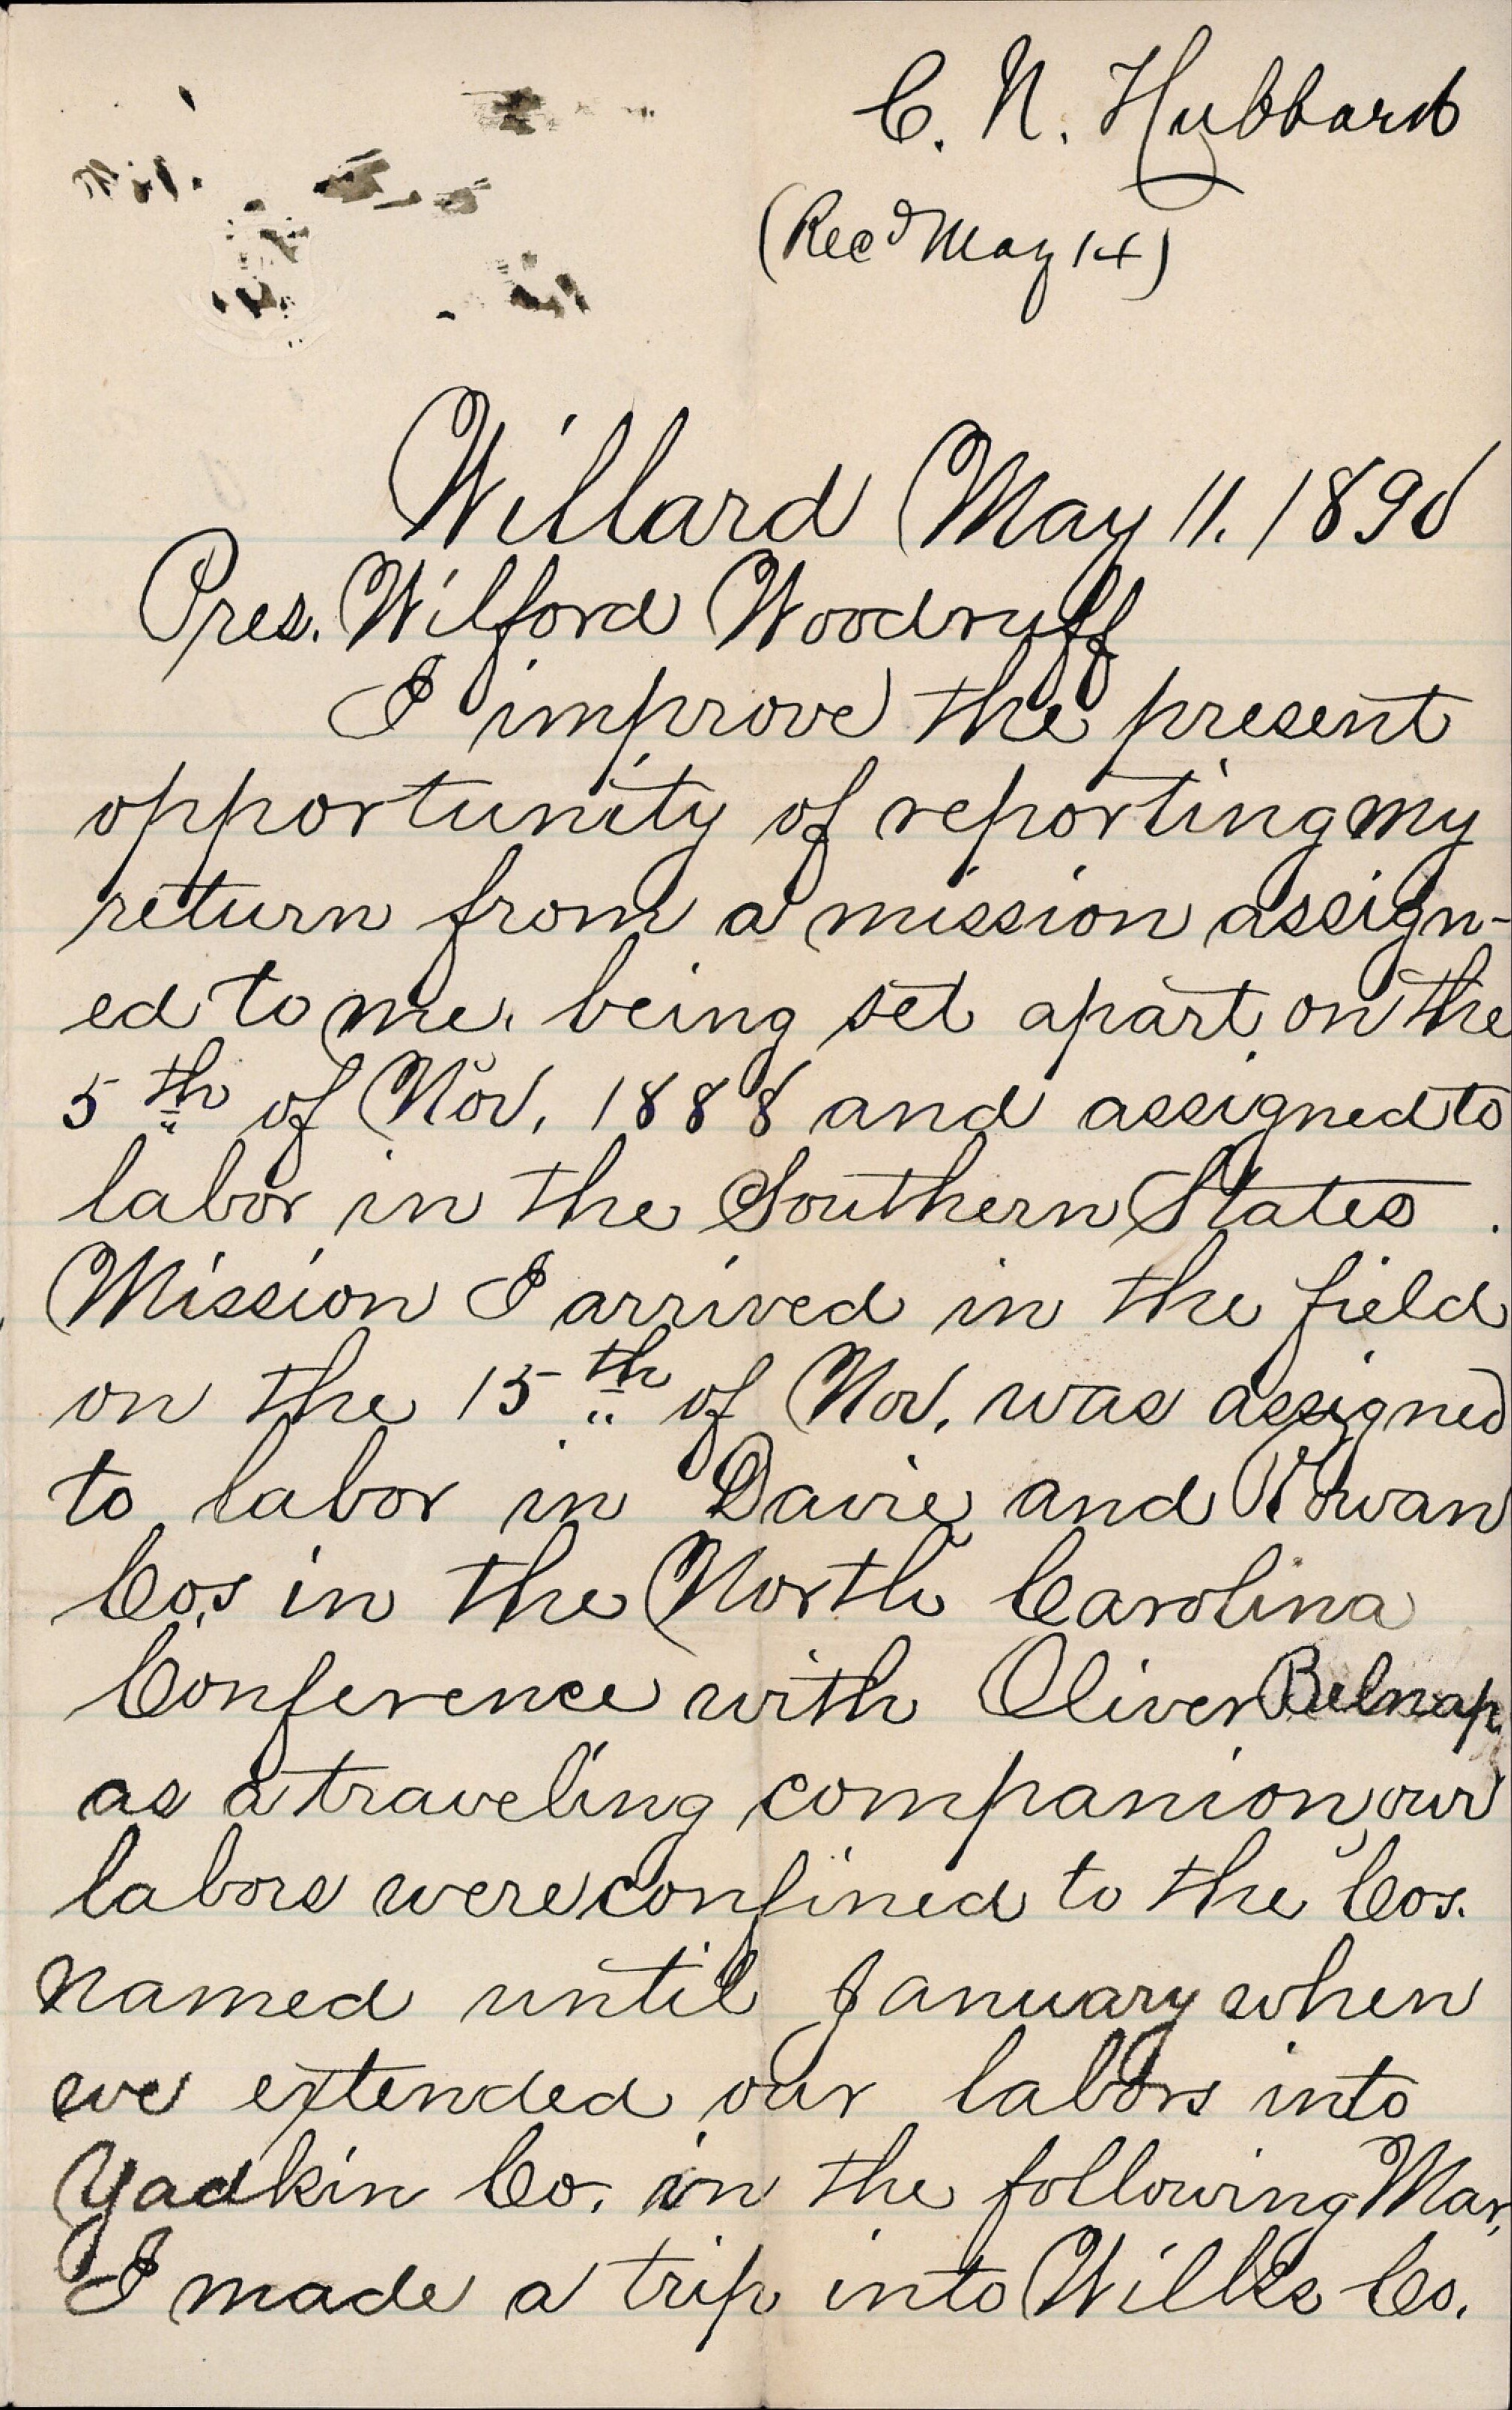 C. N. Hubbard
(Recd May 14)
Willard May 11. 1890
Pres. Wilford Woodruff
I improve the present
opportunity of reporting my
return from a mission assign-
ed to me. being set apart on the
5th of Nov, 1888 and assigned to
labor in the Southern States.
Mission I arrived in the field
on the 15th of Nov, was assigned
to labor in Davie and Rowan
Co,s in the North Carolina
Conference with Oliver Belnap.
as a traveling companion, our
labors were confined to the Cos.
named until January when
we extended our labors into
Yadkin Co. in the following Mar,
I made a trip into Wilks Co.